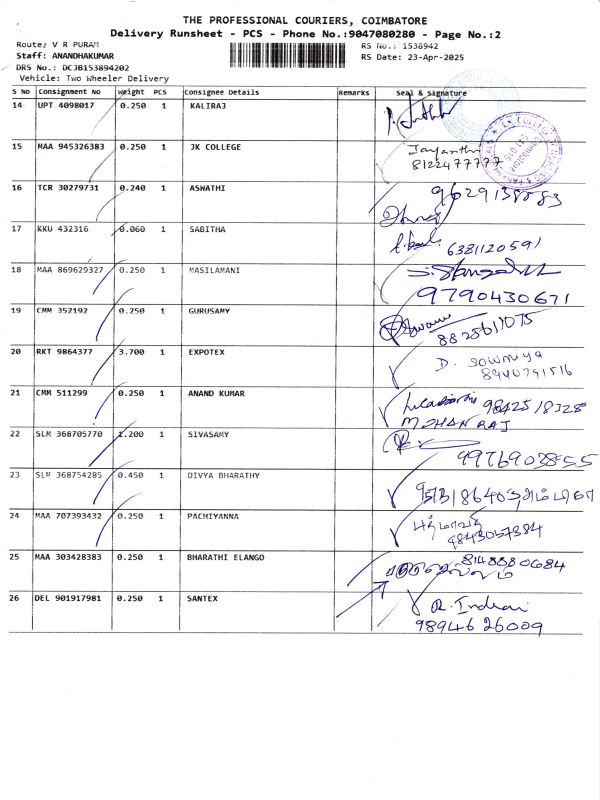 THE PROFESSIONAL COURIERS, COIMBATORE
Delivery Runsheet - PCS - Phone No.:9047080280 - Page No.:2
Route: V R PURAM RS No.: 1538942
Staff: ANANDHAKUMAR RS Date: 23-Apr-2025
DRS No.: DCJB153894202
Vehicle: Two Wheeler Delivery
S No Consignment No Weight PCS Consignee Details Remarks Seal & Signature
14 UPT 4098017 0.250 1 KALIRAJ
15 MAA 945326383 0.250 1 JK COLLEGE Jayanthi
8122477777
16 TCR 30279731 0.240 1 ASWATHI
17 KKU 432316 0.060 1 SABITHA
6381120591
18 MAA 869629327 0.250 1 MASILAMANI
9790430671
19 CMM 352192 0.250 1 GURUSAMY
8825611075
20 RKT 9864377 3.700 1 EXPOTEX D. SOWMIYA
8940791516
21 CMM 511299 0.250 1 ANAND KUMAR 9842518328
MOHAN RAJ
22 SLM 368705770 1.200 1 SIVASAMY
23 SLM 368754285 0.450 1 DIVYA BHARATHY
24 MAA 707393432 0.250 1 PACHIYANNA
9843057384
25 MAA 303428383 0.250 1 BHARATHI ELANGO 8148880684
26 DEL 901917981 0.250 1 SANTEX R. Indrai
98946 26009